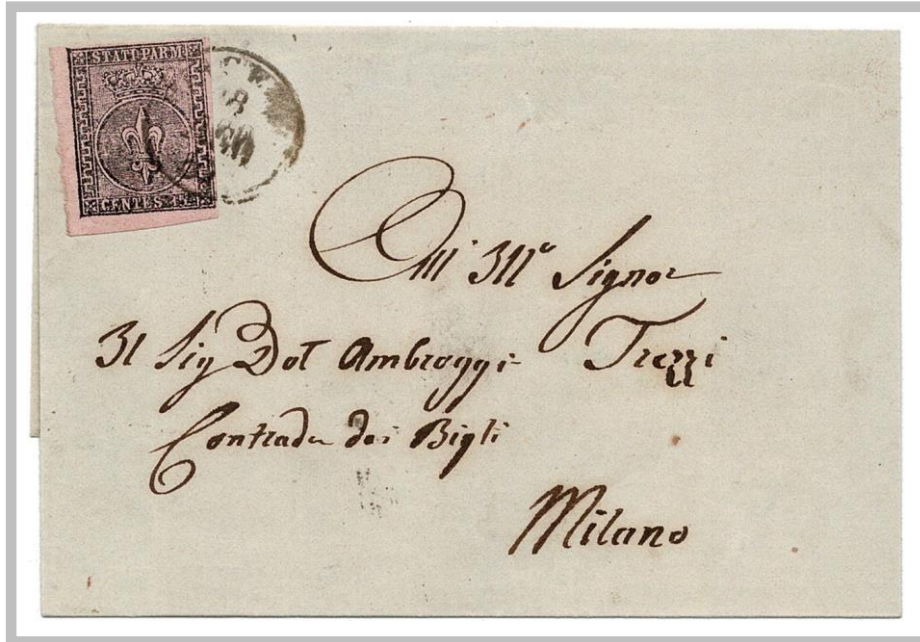 STATI PARM
CENTES. 15
All' Ill.º Signor
Il Sig Dot Ambroggi Trezzi
Contrada dei Bigli
Milano